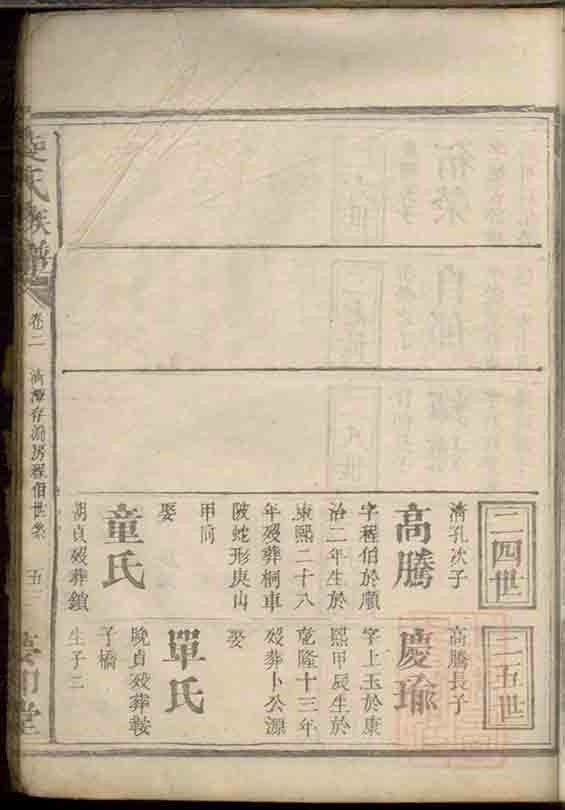 氏族譜
卷二
五
二四世
濟孔次子
高騰
字程伯於順
治二年生於
康熙二十八
年歿葬桐車
陂蛇形庚山
甲向
娶
童氏
胡貞歿葬鎖
二五世
高騰長子
慶瑜
字上玉於康
熙甲辰生於
乾隆十三年
歿葬卜公源
娶
單氏
晚貞歿葬鞍
子橋
生子二